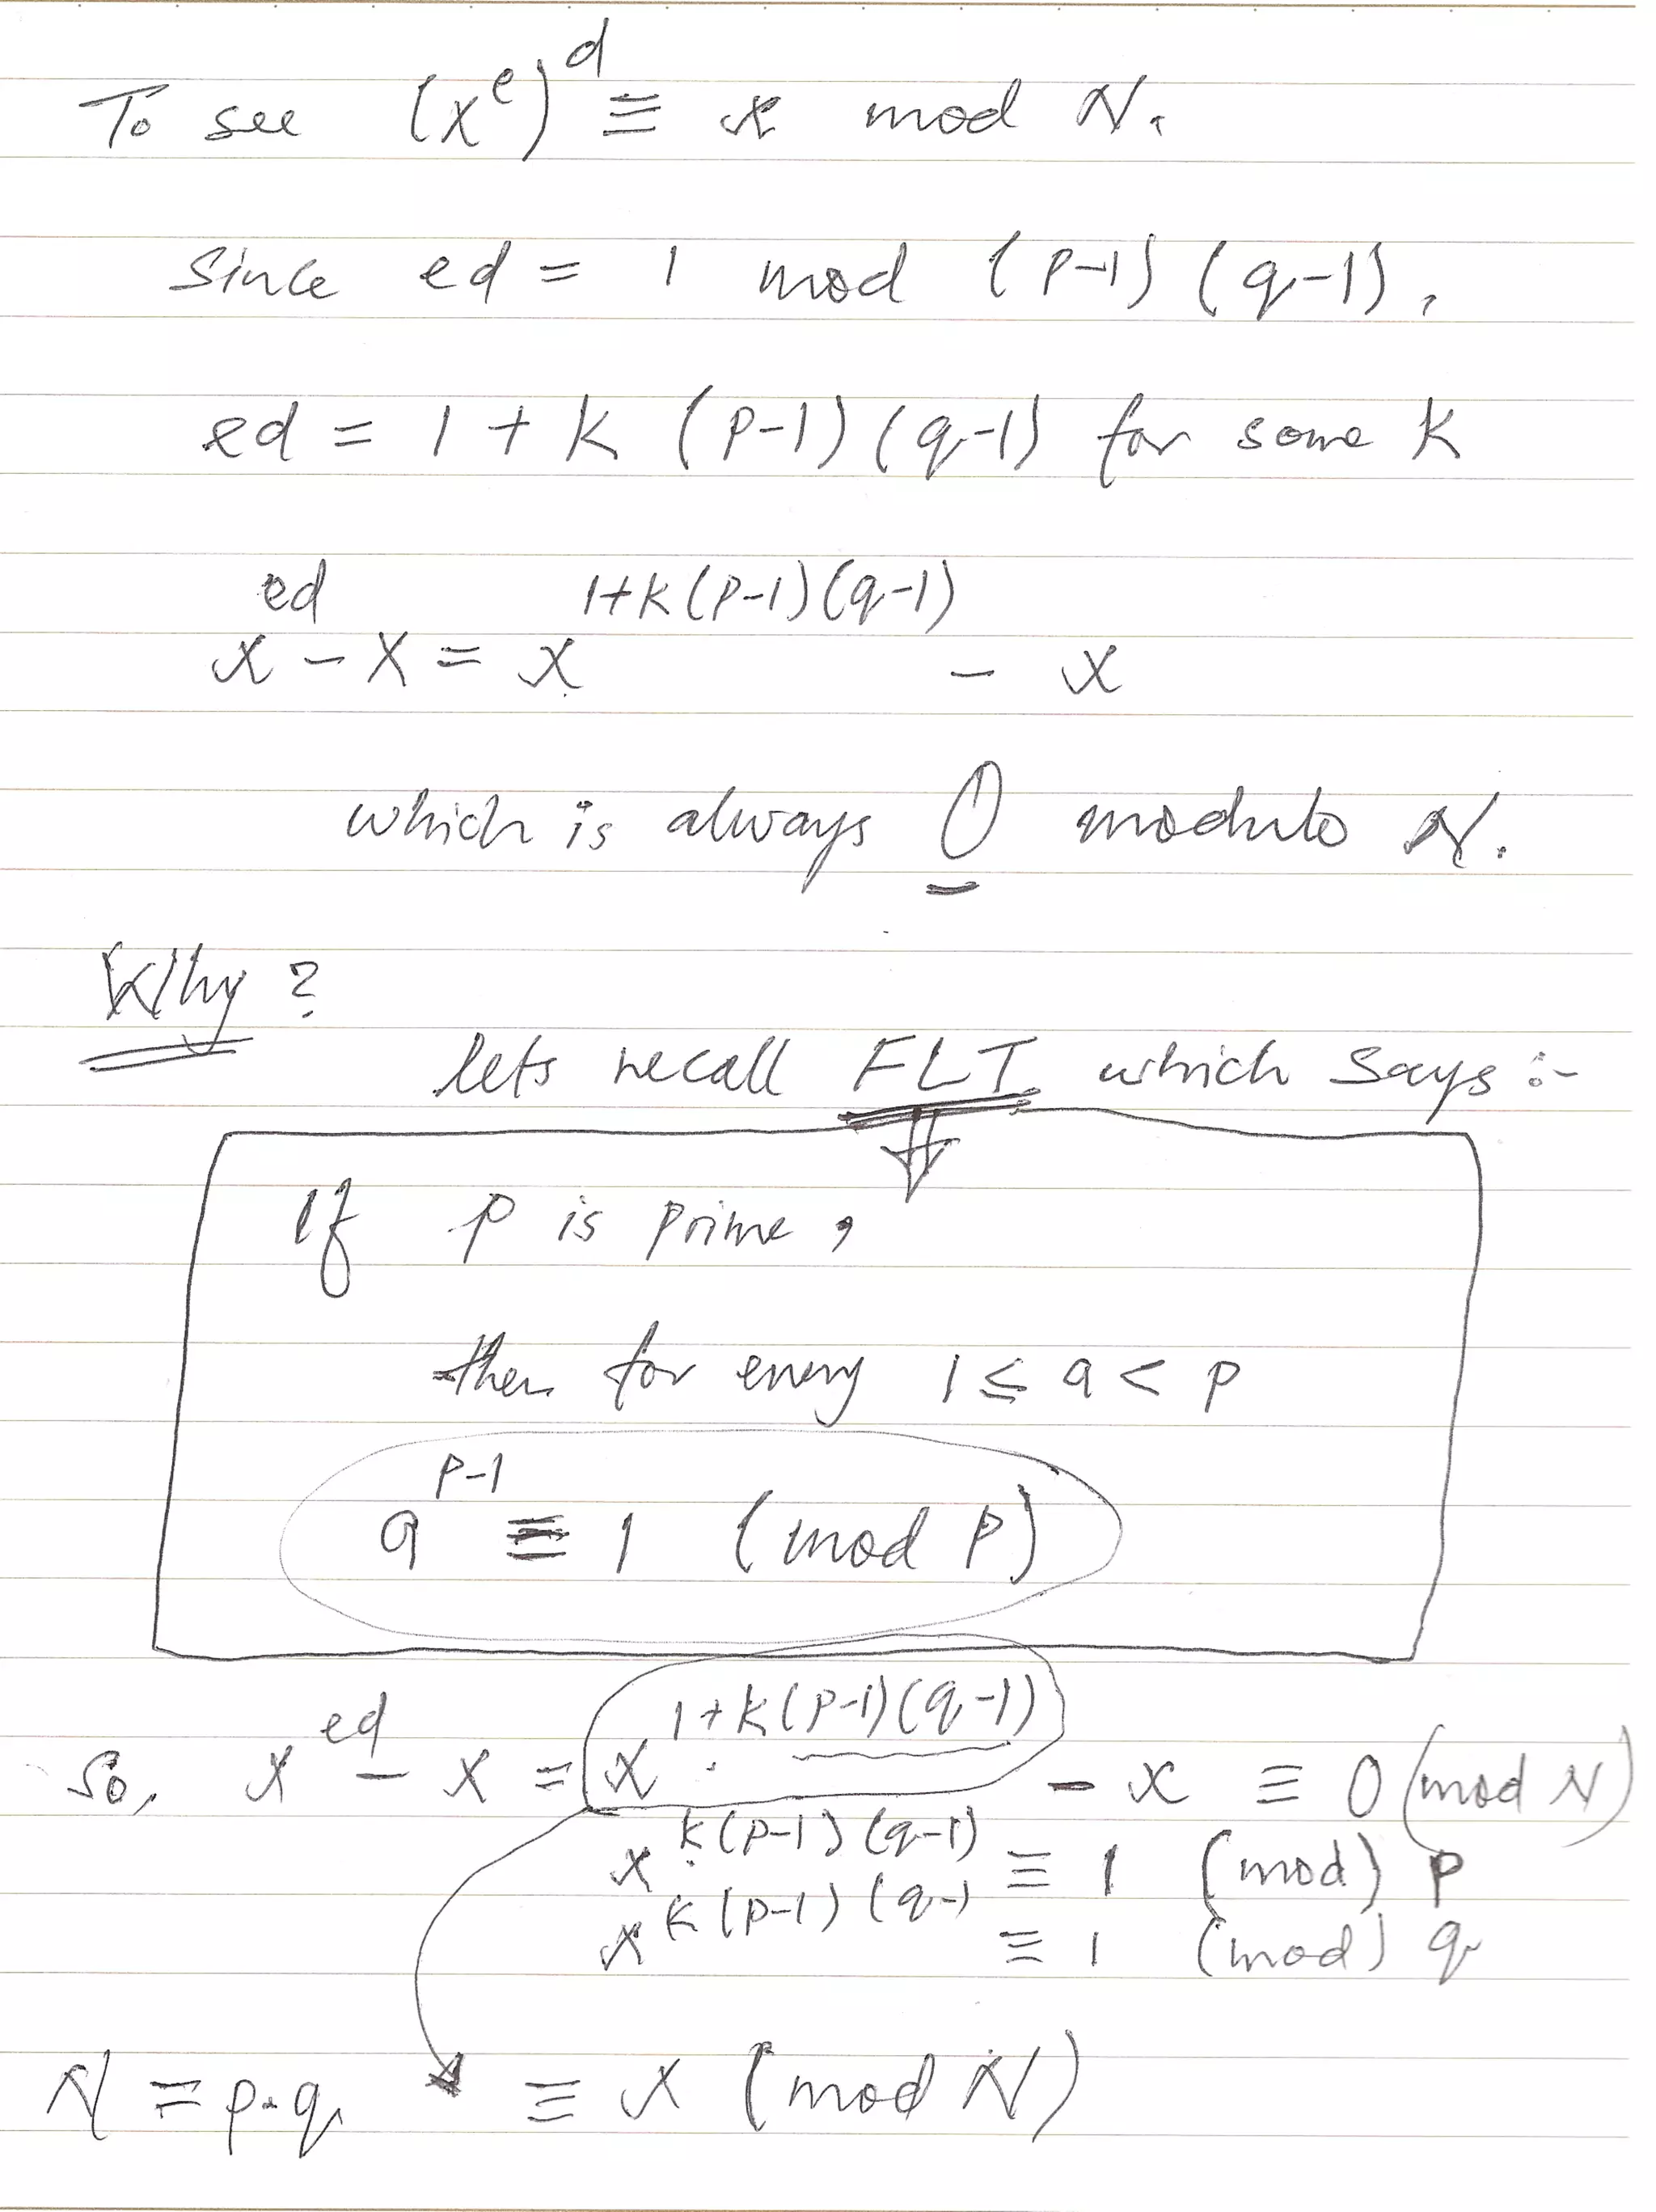 To see (x^e)^d ≡ x mod N.
Since ed = 1 mod (p-1) (q-1),
ed = 1 + k (p-1) (q-1) for some k
x^ed - x = x^1+k(p-1)(q-1) - x
which is always 0 modulo N.
Why?
lets recall FLT which says :-
If p is prime,
then for every 1 ≤ a < p
a^p-1 ≡ 1 (mod p)
So, x^ed - x = x^1+k(p-1)(q-1) - x ≡ 0 (mod N)
x^k(p-1)(q-1) ≡ 1 (mod) p
x^k(p-1)(q-1 ≡ 1 (mod) q
N = p.q ≡ x (mod N)